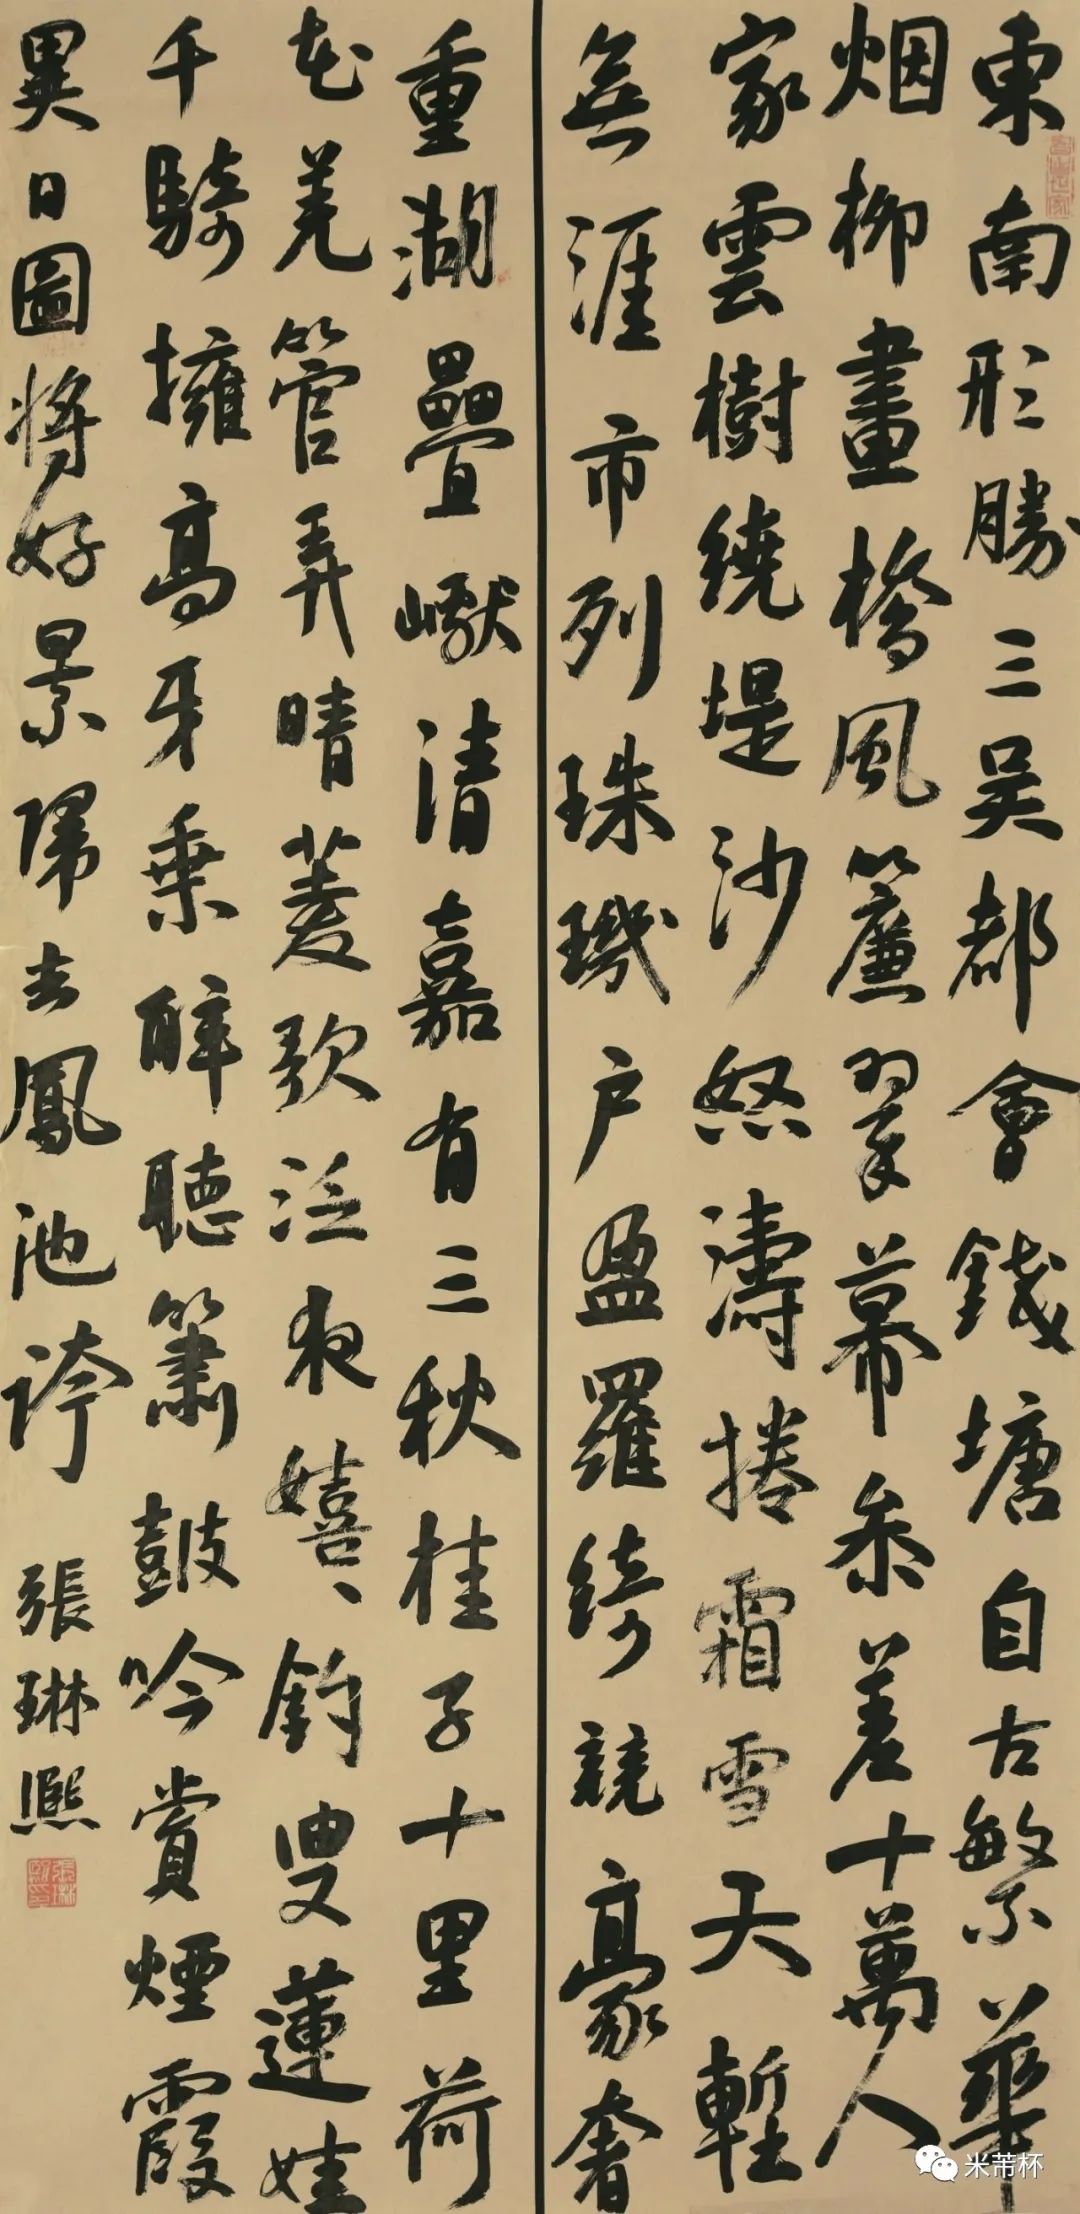 東南形勝三吳都會錢塘自古繁華
烟柳畫橋風簾翠幕叅差十萬人
家雲樹繞堤沙怒濤捲霜雪天塹
無涯市列珠璣戶盈羅綺競豪奢
重湖疊巘清嘉有三秋桂子十里荷
花羌管弄晴菱歌泛夜嬉嬉釣叟蓮娃
千騎擁高牙乘醉聽簫鼓吟賞煙霞
異日圖將好景歸去鳳池誇
張琳熙
米芾杯